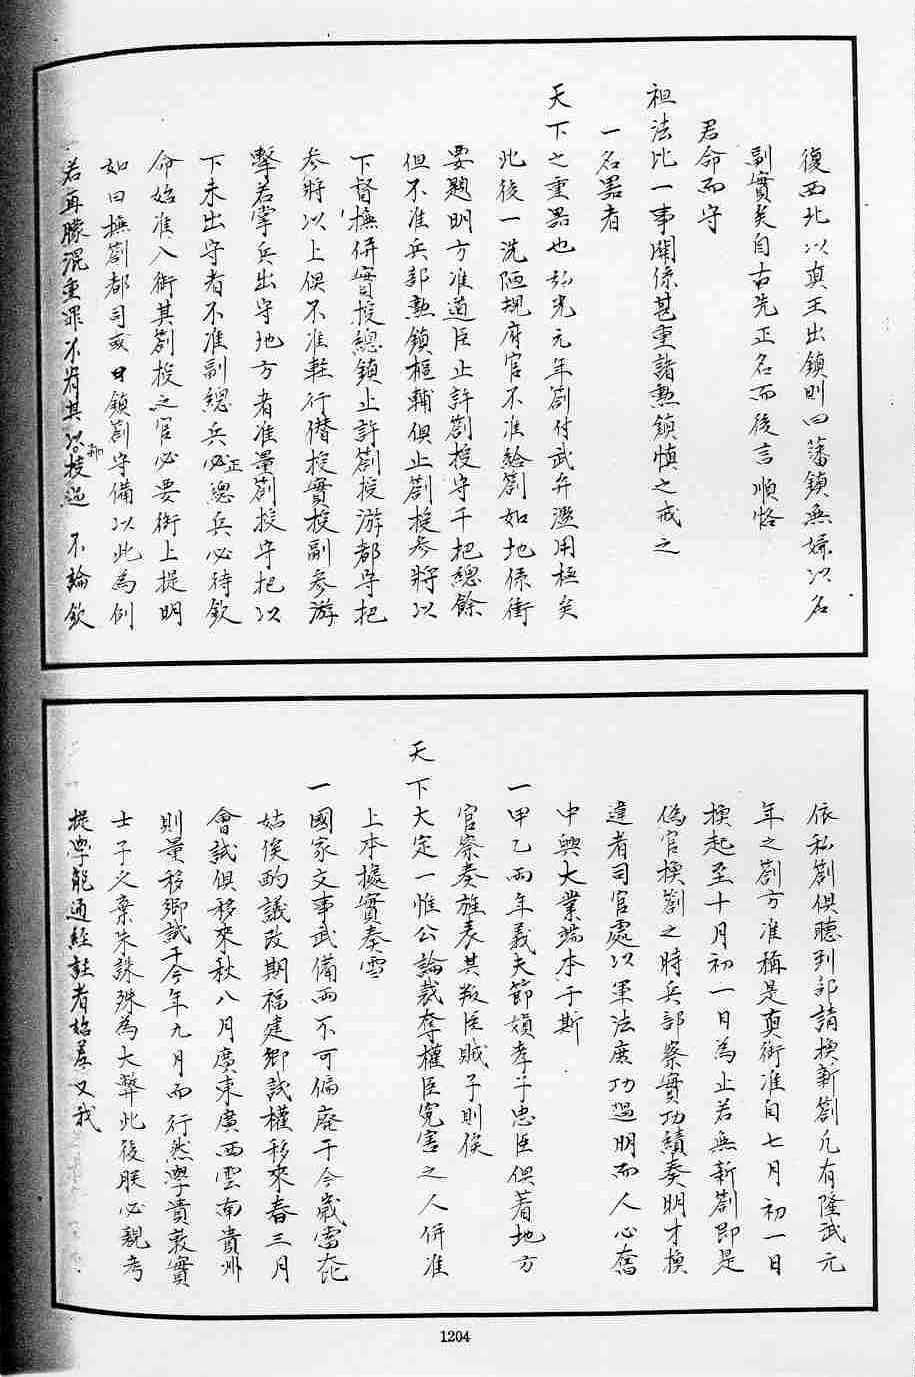 復西北以真王出鎮則曰藩鎮無嫌以名
副實矣自古先正名而後言順恪
君命而守
祖法此一事關係甚重諸勲鎮慎之戒之
一名器者
天下之重器也弘光元年劄付武弁濫用極矣
此後一洗陋規府官不准給劄如地係衝
要題明方准道臣止許劄授守千把總餘
但不准兵部勲鎮樞輔俱止劄授參將以
下督撫併實授總鎮止許劄授游都守把
參將以上俱不准輕行僭授實授副參游
擊若掌兵出守地方者准量劄授守把以
下未出守者不准副總兵正總兵必待欽
命始准入銜其劄授之官必要銜上提明
如曰撫劄都司或曰鎮劄守備以此為例
若再朦混重罪不宥其以和授過不論欽
依私劄俱聽到部請換新劄凡有隆武元
年之劄方准稱是真銜准自七月初一日
換起至十月初一日為止若無新劄即是
偽官換劄之時兵部察實功績奏明才換
違者司官處以軍法庶功過明而人心奮
中興大業端本于斯
一甲乙兩年義夫節婦孝子忠臣俱着地方
官察奏旌表其叛臣賊子則俟
天下大定一惟公論裁奪權臣冤害之人併准
上本據實奏雪
一國家文事武備兩不可偏廢于今歲當大比
姑俟酌議改期福建鄉試權移來春三月
會試俱移來秋八月廣東廣西雲南貴州
則量移鄉試于今年九月而行然學貴敦實
士子之棄朱誅殊為大弊此後朕必親考
提學能通經註者始差又我
1204